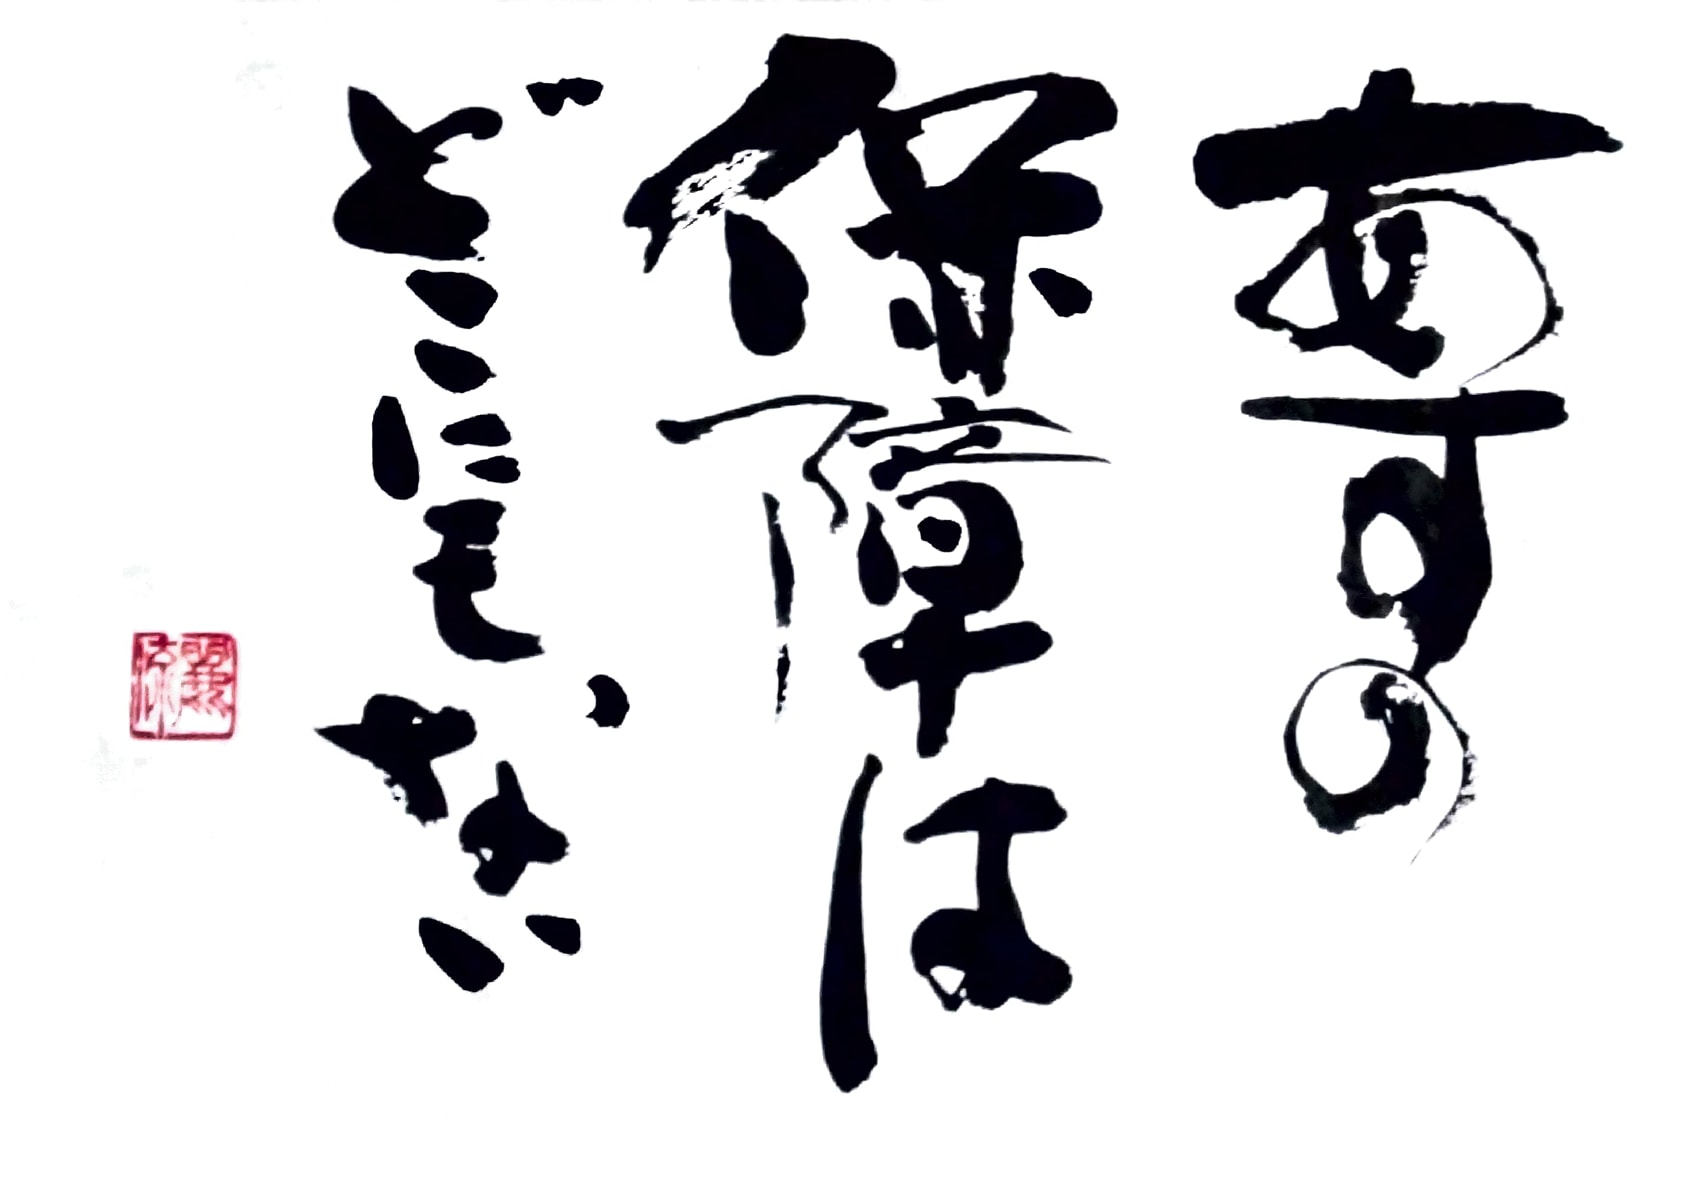 あすの
保障は
どこにもない